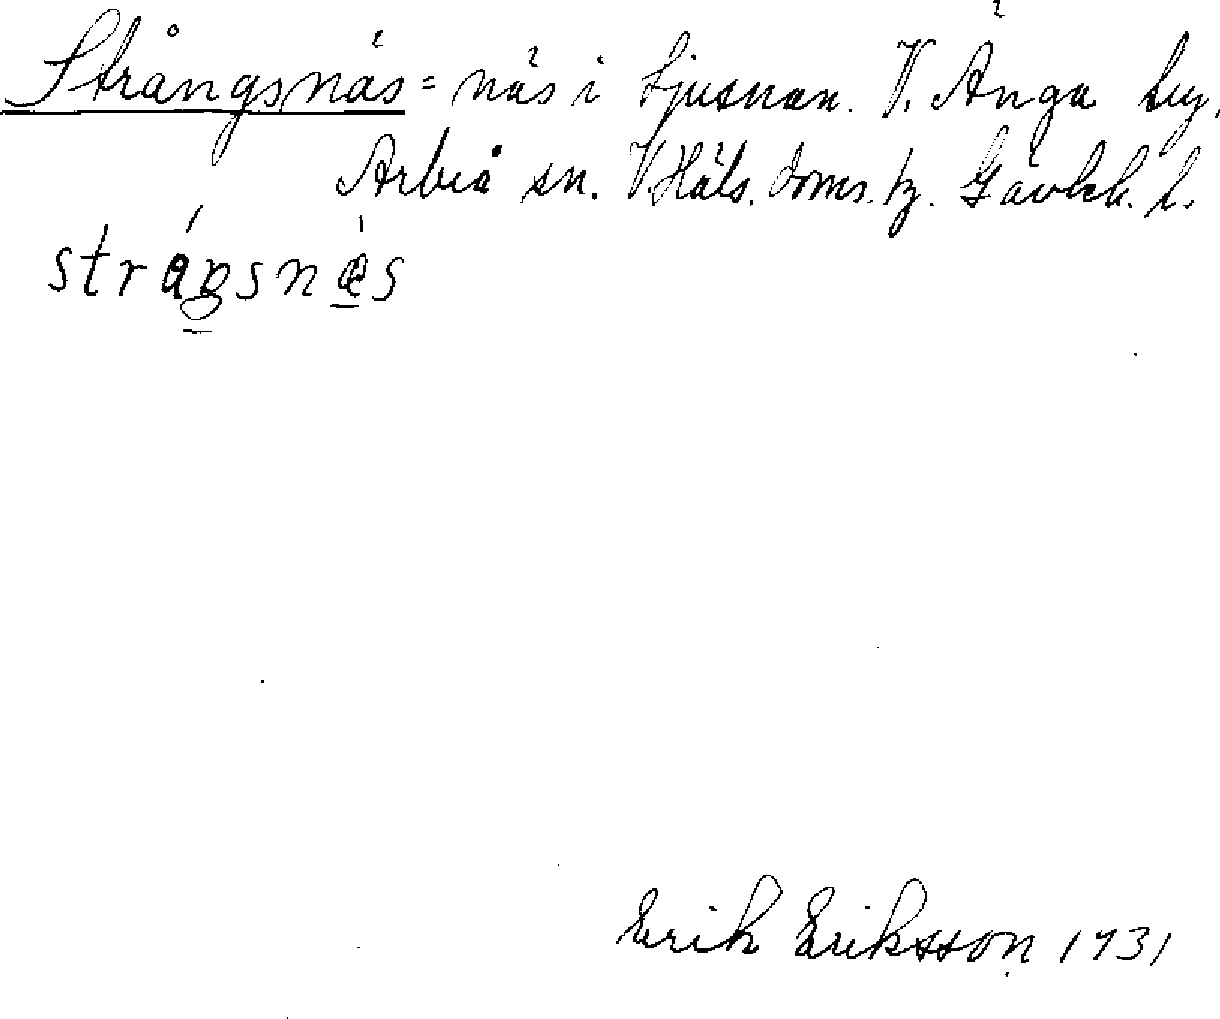 Strångsnäs = näs i Ljusnan. V. Änga by,
Arbrå sn. V. Häls. doms. Gävleb. l.
stráŋsnæs
Erik Eriksson 1931